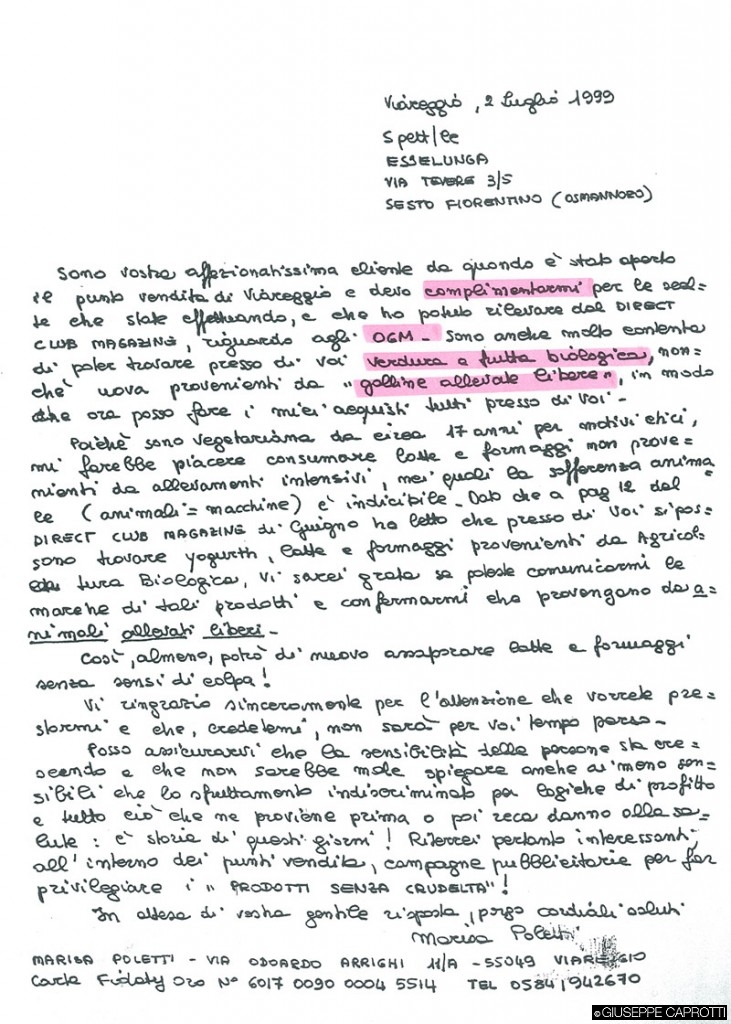 Viareggio, 2 Luglio 1999
Spett/le
ESSELUNGA
VIA TEVERE 3/5
SESTO FIORENTINO (OSMANNORO)
Sono vostra affezionatissima cliente da quando è stato aperto
il punto vendita di Viareggio e devo complimentarmi per le scel=
te che state effettuando, e che ho potuto rilevare dal DIRECT
CLUB MAGAZINE, riguardo agli OGM - Sono anche molto contenta
di poter trovare presso di voi verdura e frutta biologica, non=
ché uova provenienti da "galline allevate libere", in modo
che ora posso fare i miei acquisti tutti presso di voi -
Poiché sono vegetariana da circa 17 anni per motivi etici,
mi farebbe piacere consumare latte e formaggi non prove=
nienti da allevamenti intensivi, nei quali la sofferenza anima=
le (animali = macchine) è indicibile - Dato che a pag 12 del
DIRECT CLUB MAGAZINE di Giugno ho letto che presso di voi si pos=
sono trovare yogurth, latte e formaggi provenienti da Agricol=
tura Biologica, vi sarei grata se poteste comunicarmi le
marche di tali prodotti e confermarmi che provengano da a=
nimali allevati liberi -
Così, almeno, potrò di nuovo assaporare latte e formaggi
senza sensi di colpa!
Vi ringrazio sinceramente per l'attenzione che vorrete pre=
starmi e che, credetemi, non sarà per voi tempo perso -
Posso assicurarvi che la sensibilità delle persone sta cre=
scendo e che non sarebbe male spiegare anche ai meno sen=
sibili che lo sfruttamento indiscriminato per logiche di profitto
e tutto ciò che ne proviene prima o poi reca danno alla sa=
lute: è storia di questi giorni! Riterrei pertanto interessanti,
all'interno dei punti vendita, campagne pubblicitarie per far
privilegiare i "PRODOTTI SENZA CRUDELTA'"!
In attesa di vostra gentile risposta, porgo cordiali saluti
Marisa Poletti
MARISA POLETTI - VIA ODOARDO ARRIGHI 11/A - 55049 VIAREGGIO
Carta Fidaty Oro N° 6017 0090 0004 5514 TEL 0584/942670
©GIUSEPPE CAPROTTI